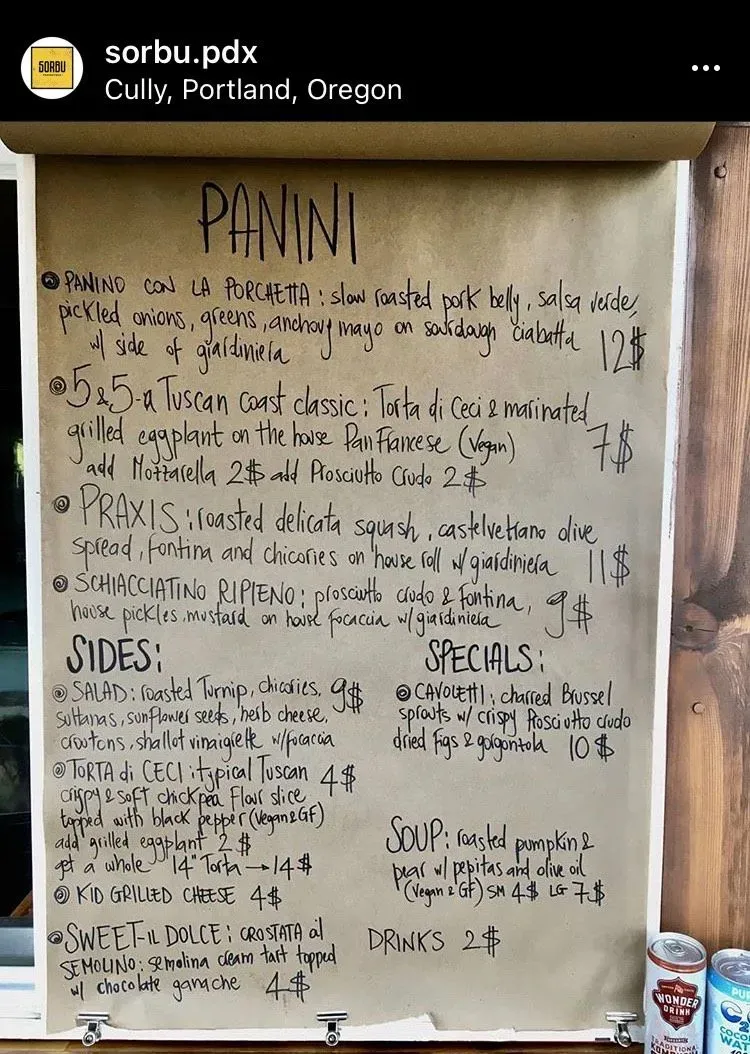 SORBU
sorbu.pdx
Cully, Portland, Oregon
PANINI
PANINO CON LA PORCHETTA : slow roasted pork belly, salsa verde,
pickled onions, greens, anchovy mayo on sourdough ciabatta
w/ side of giardiniera 12$
5&5-a Tuscan coast classic: Torta di Ceci & marinated
grilled eggplant on the house Pan Francese (Vegan) 7$
add Mozzarella 2$ add Prosciutto Crudo 2$
PRAXIS: roasted delicata squash, castelvetrano olive
spread, fontina and chicories on house roll w/ giardiniera 11$
SCHIACCIATINO RIPIENO: prosciutto crudo & fontina, 9$
house pickles, mustard on house focaccia w/ giardiniera
SIDES:
SALAD: roasted Turnip, chicories, 9$
sultanas, sunflower seeds, herb cheese,
croutons, shallot vinaigrette w/ focaccia
TORTA di CECI: typical Tuscan 4$
crispy & soft chickpea flour slice
topped with black pepper (Vegan & GF)
add grilled eggplant 2$
get a whole 14" Torta → 14$
KID GRILLED CHEESE 4$
SWEET-IL DOLCE: CROSTATA al
SEMOLINO: semolina cream tart topped
w/ chocolate ganache 4$
SPECIALS:
CAVOLETTI: charred Brussel
sprouts w/ crispy Prosciutto crudo
dried figs & gorgonzola 10$
SOUP: roasted pumpkin &
pear w/ pepitas and olive oil
(Vegan & GF) SM 4$ LG 7$
DRINKS 2$
WONDER
DRINK
TRADITIONAL
PU
C2
COCO
WAT